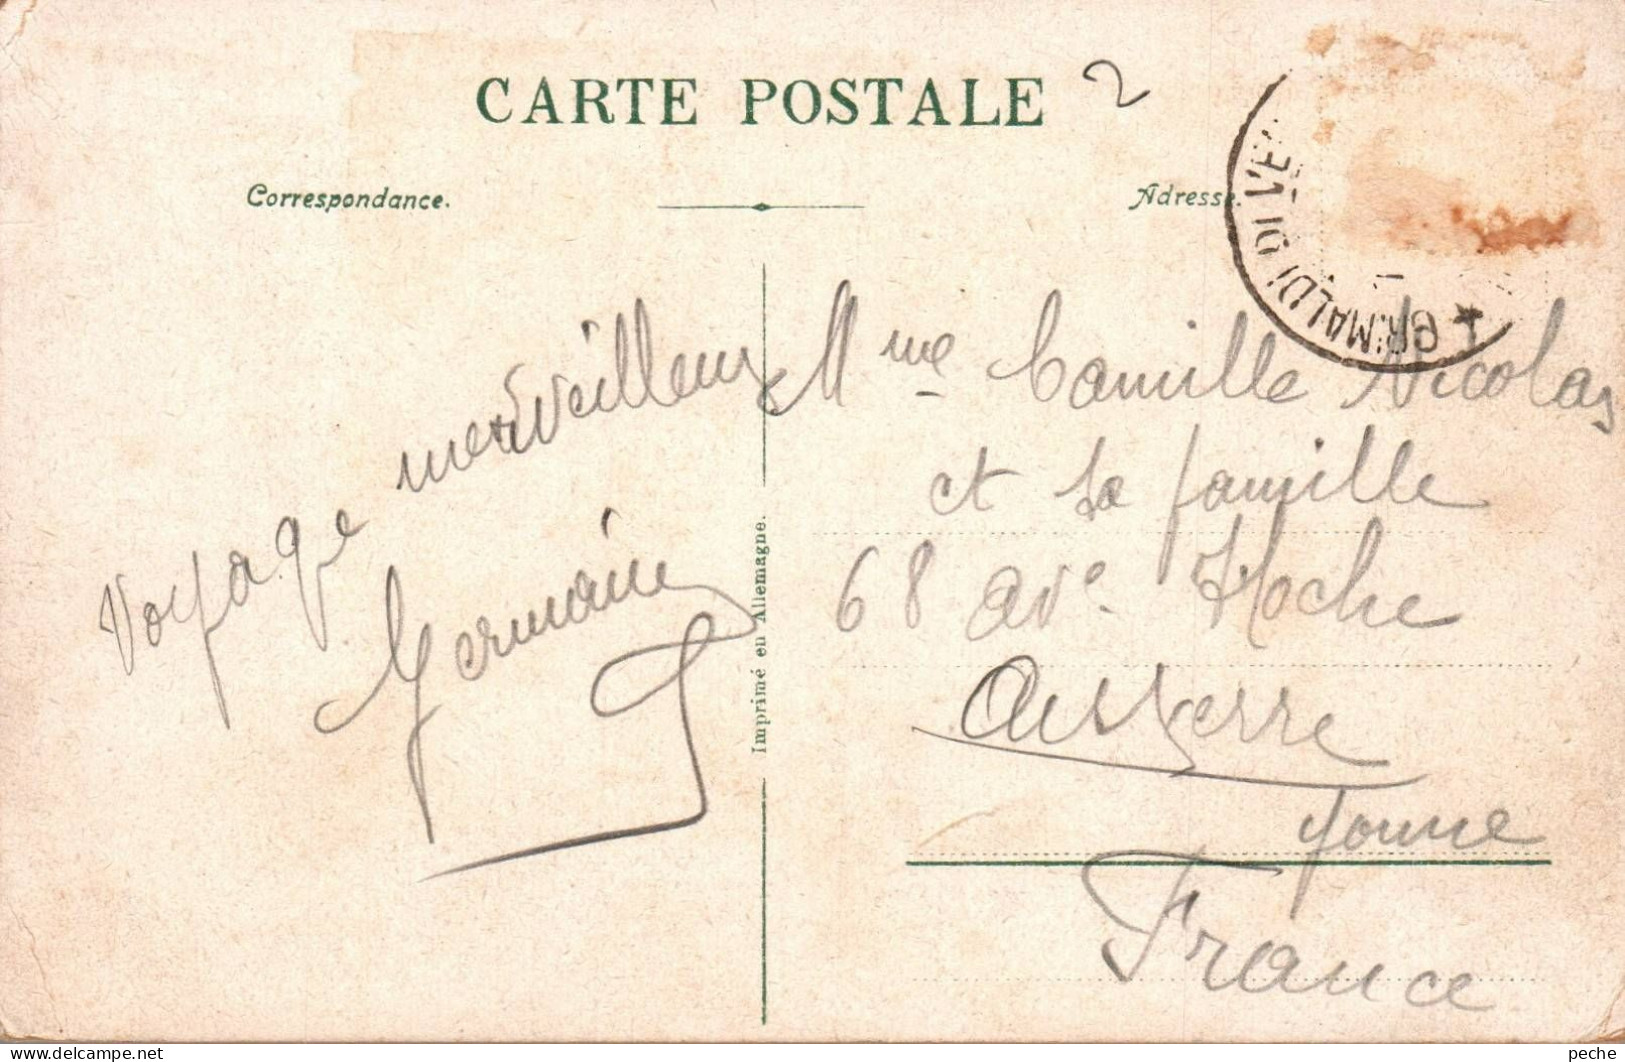 CARTE POSTALE
2
Correspondance.
Adresse.
GRIMALDI DI VE
Voyage merveilleux
Germaine
Imprimé en Allemagne.
Mme Camille Nicolas
et sa famille
68 ave Hoche
Auxerre
Yonne
France
peche